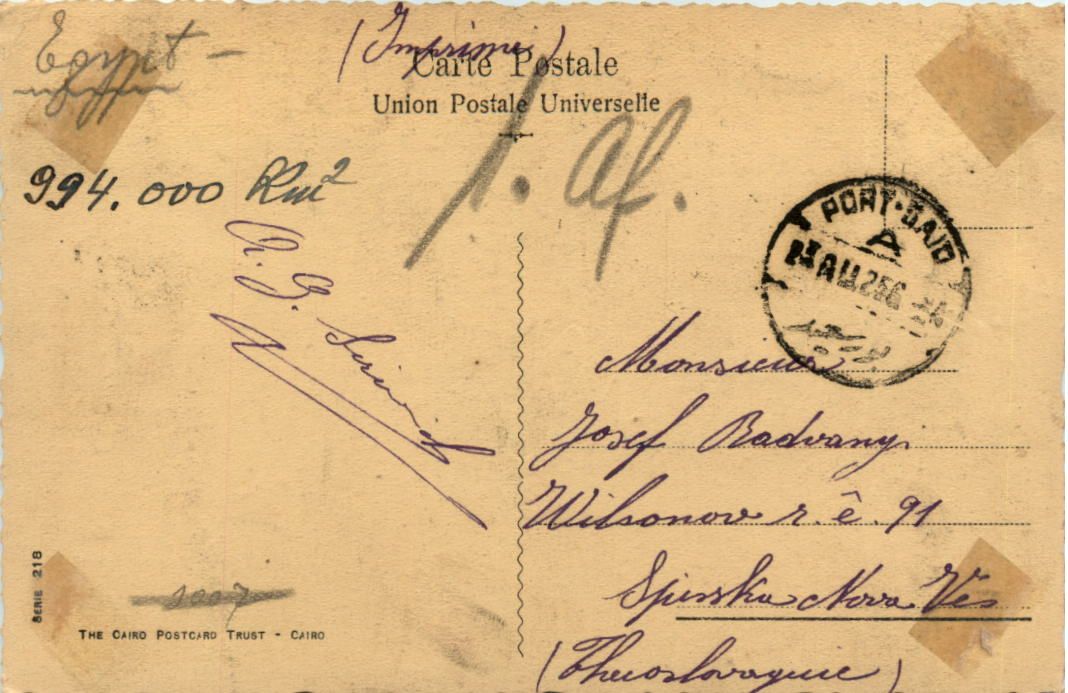 Egypt -
(Imprimé)
Carte Postale
Union Postale Universelle
1. af.
994.000 Km²
PORT-SAID
A
AU 256
Monsieur
Josef Radvanyi
Wilsonov r. ê. 91
Spisska Nova Ves
(Thecoslovaquie)
SERIE 218
1007
THE CAIRO POSTCARD TRUST - CAIRO